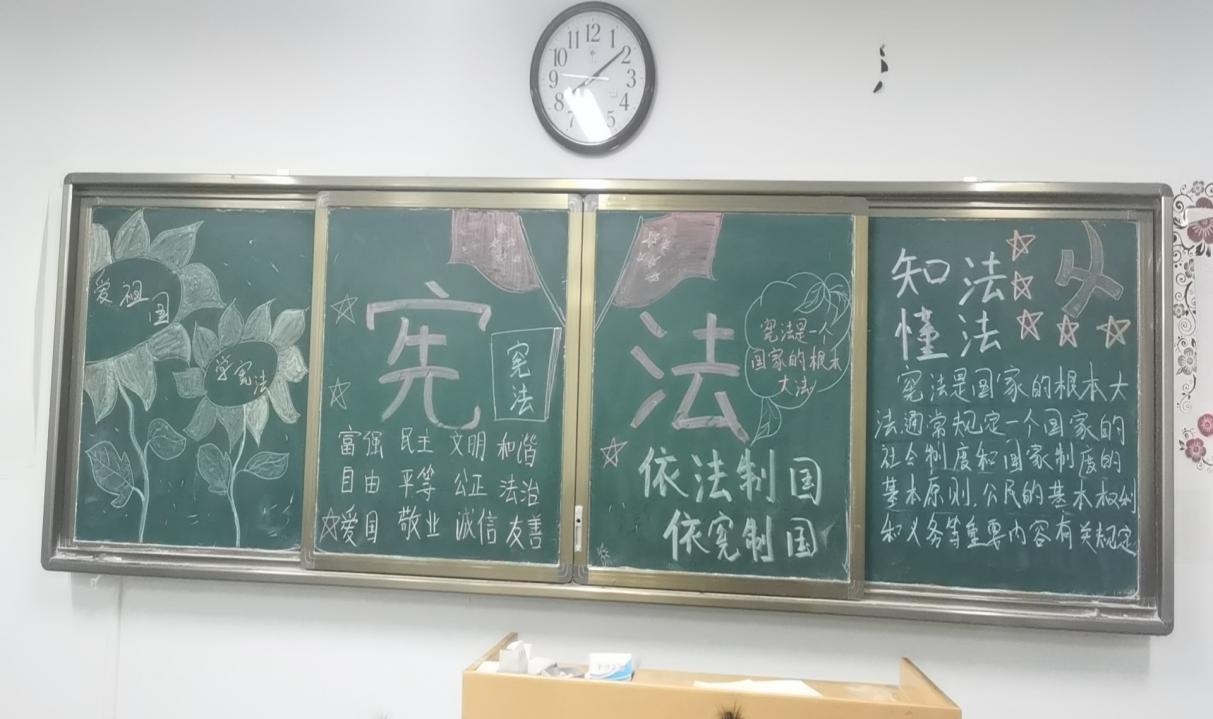 12
11
1
10
2
9
3
8
4
7
5
爱祖国
学宪法
宪
宪法
富强 民主 文明 和谐
自由 平等 公正 法治
爱国 敬业 诚信 友善
法
宪法是一个
国家的根本
大法
依法制国
依宪制国
知法
懂法
宪法是国家的根本大
法通常规定一个国家的
社会制度和国家制度的
基本原则.公民的基本权利
和义务等重要内容有关规定